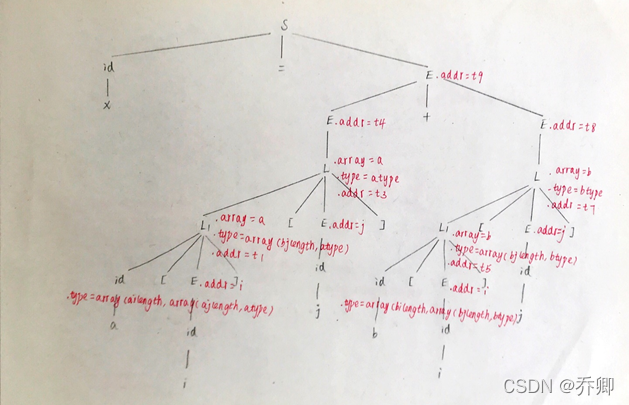 S
id = E.addr=t9
x
E.addr=t4 + E.addr=t8
L .array=a
.type=atype
.addr=t3
L .array=b
.type=btype
.addr=t7
L1 .array=a
.type=array(ajlength, btype)
.addr=t1
[ E.addr=j ]
L1 .array=b
.type=array(bjlength, btype)
.addr=t5
[ E.addr=j ]
id [ E.addr=i ]
id
id [ E.addr=i ]
id
.type=array(ailength, array(ajlength, atype)
.type=array(bilength, array(bjlength, btype)
a
id
j
b
id
j
i
i
CSDN @乔卿